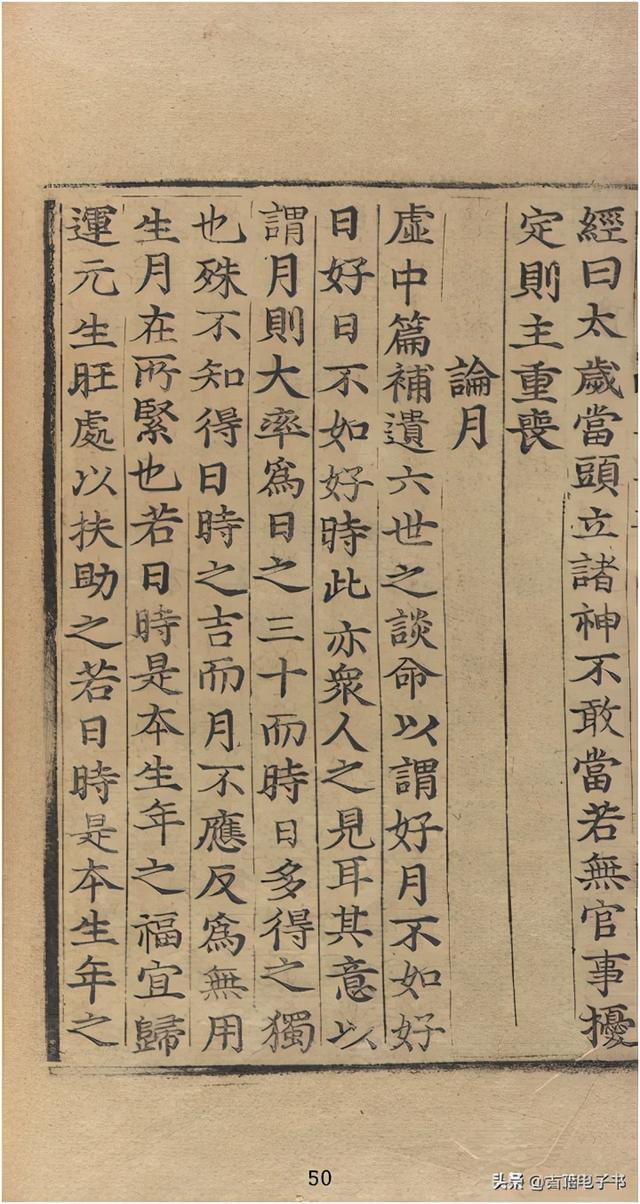 經曰太歲當頭立諸神不敢當若無官事擾
定則主重喪
論月
虛中篇補遺六世之談命以謂好月不如好
日好日不如好時此亦衆人之見耳其意以
謂月則大率爲日之三十而時日多得之獨
也殊不知得日時之吉而月不應反爲無用
生月在所緊也若日時是本生年之福宜歸
運元生旺處以扶助之若日時是本生年之
50
头条@古籍电子书